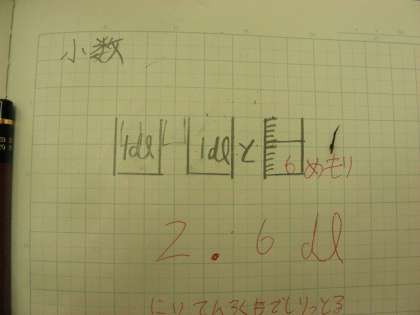 小数
1dl 1dlと 6めもり
2.6dl
にいてんろくデしりっとる